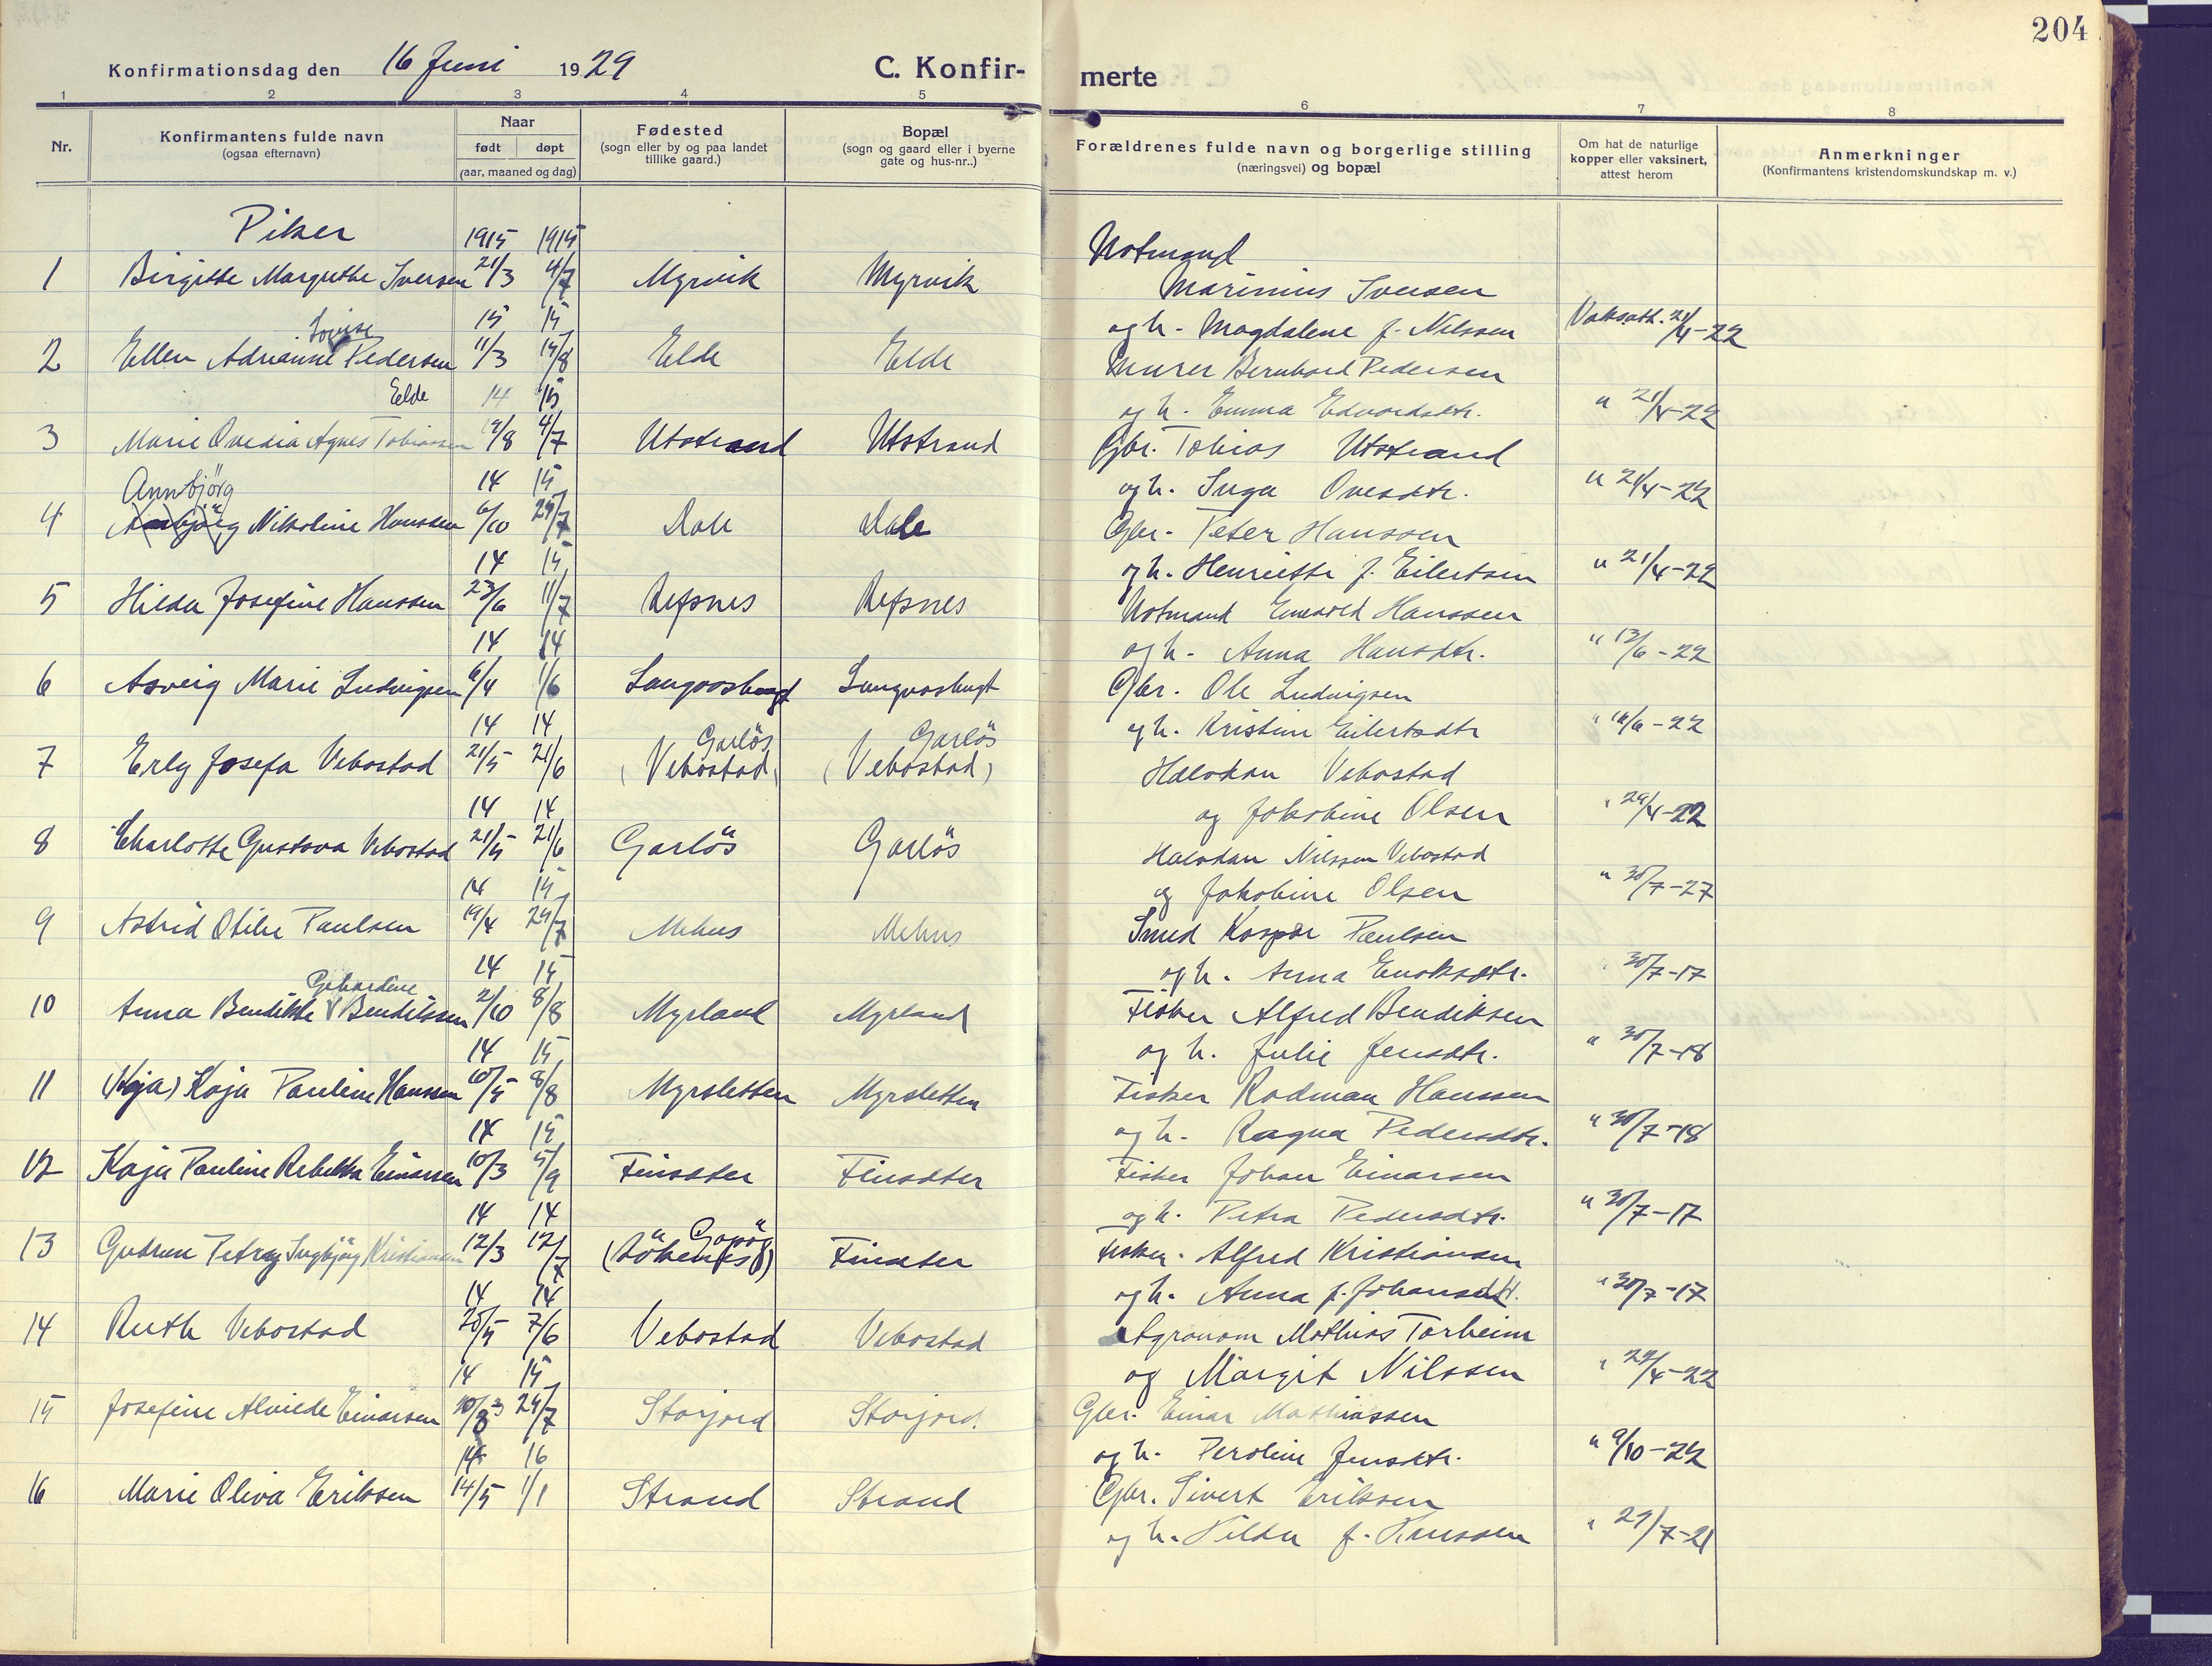 204
Konfirmationsdag den 16 Juni 1929 C. Konfir- merte
1 2 3 4 5 6 7 8
Nr. Konfirmantens fulde navn (ogsaa efternavn) Naar født døpt (aar, maaned og dag) Fødested (sogn eller by og paa landet tillike gaard.) Bopæl (sogn og gaard eller i byerne gate og hus-nr..) Forældrenes fulde navn og borgerlige stilling (næringsvei) og bopæl Om hat de naturlige kopper eller vaksinert, attest herom Anmerkninger (Konfirmantens kristendomskundskap m. v.)
Piker
1915 1915 Notmand
1 Birgitte Margrethe Iversen 21/3 4/7 Myrvik Myrvik Marinius Iversen
15 15 og h. Magdalene f. Nilssen Vaksatt. 21/4-22
Lovise
2 Ellen Adrianne Pedersen 11/3 15/8 Elde Elde Murer Bernhard Pedersen
Elde 14 15 og h. Emma Edvardsdtr. " 21/4-22
3 Marie Ovedia Agnes Tobiassen 12/8 4/7 Utstrand Utstrand Gbr. Tobias Utstrand
14 15 og h. Inga Ovesdtr. " 21/4-22
Annbjörg
4 Nikoline Hanssen 6/10 25/7 Dale Dale Gbr. Peter Hanssen
14 15 og h. Henriette f. Eilertsen " 21/4-22
5 Hilda Josefine Hanssen 23/6 11/7 Refsnes Refsnes Notmand Hanssen
14 14 og h. Anna Hansdtr. " 13/6-22
6 Asveig Marie Ludvigsen 6/4 1/6 Langvasbugt Langvasbugt Gbr. Ole Ludvigsen
14 14 og h. Kristine Eilertsdtr " 16/6-22
Garlös Garlös
7 Erly Josefa Vebostad 21/5 21/6 (Vebostad) (Vebostad) Halvdan Vebostad
14 14 og Jakobine Olsen " 29/4-22
8 Charlotte Gustava Vebostad 21/5 21/6 Garlös Garlös Halvdan Nilssen Vebostad
14 15 og Jakobine Olsen " 30/7-27
9 Astrid Otilie Paulsen 19/4 29/7 Mehus Mehus Smed Kaspar Paulsen
14 15 og h. Anna Enoksdtr. " 30/7-17
10 Anna Bendikte Bendiksen 2/10 8/8 Myrland Myrland Fisker Alfred Bendiksen
14 15 og h. Julie Jensdtr. " 30/7-18
11 (Kaja) Kaja Pauline Hanssen 10/5 8/8 Myrsletten Myrsletten Fisker Rodman Hanssen
14 15 og h. Ragna Pedersdtr. " 30/7-18
12 Kaja Pauline Rebekka Einarsen 10/3 5/9 Finsæter Finsæter Fisker Johan Einarsen
14 14 og h. Petra Pedersdtr. " 30/7-17
13 Gudrun Petra Ingbjörg Kristiansen 12/3 12/7 Finsæter Fisker. Alfred Kristiansen
14 14 og h. Anna f. Johansdtr. " 30/7-17
14 Ruth Vebostad 20/5 7/6 Vebostad Vebostad Agronom Mathias Torheim
14 15 og Margit Nilssen " 29/4-22
15 Josefine Alvilde Einarsen 24/7 Storjord Storjord. Gbr. Einar Mathiassen
14 16 og h. Peroline Jensdtr. " 9/10-22
16 Marie Oliva Eriksen 14/5 1/1 Strand Strand Gbr. Sivert Eriksen
og h. Hilda f. Knussen " 29/7-21